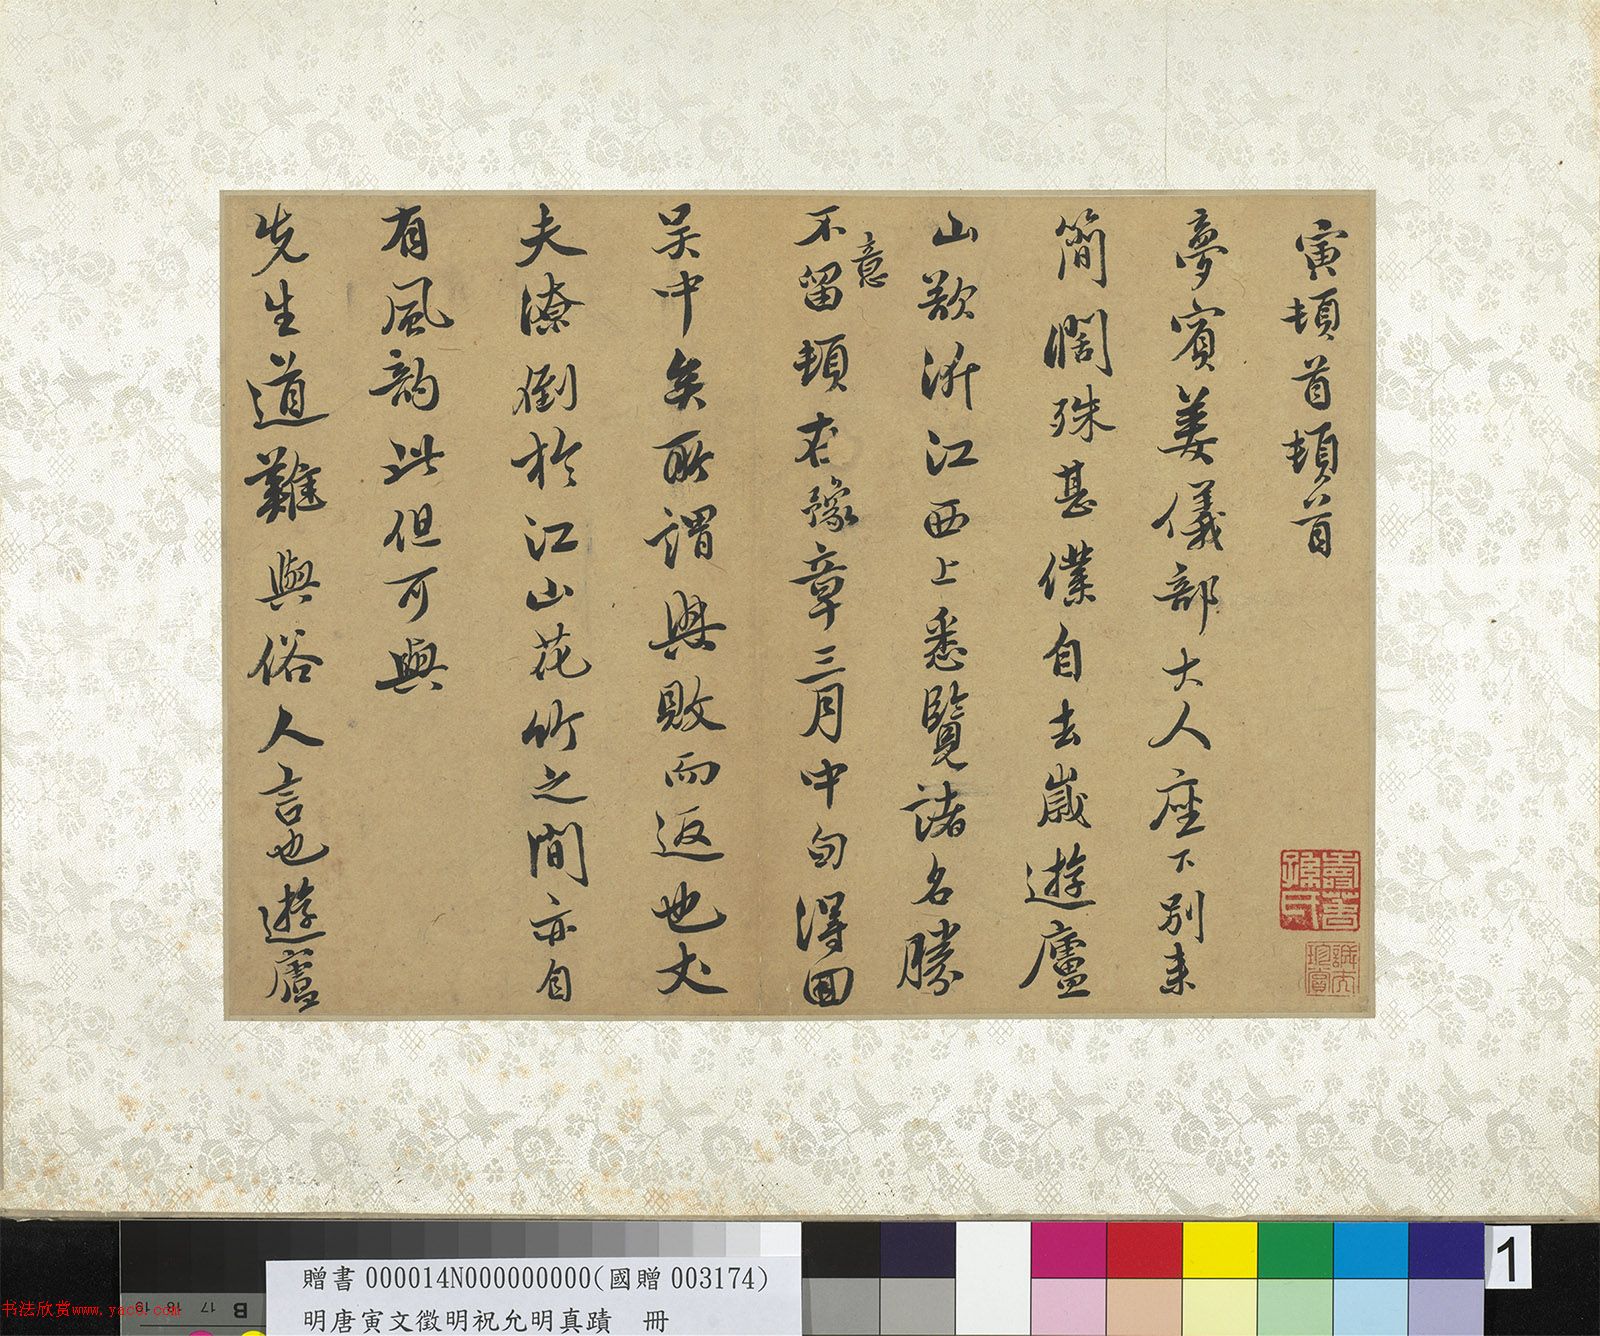 寅頓首頓首
夢賓姜儀部大人座下別來
簡闊殊甚僕自去歲遊廬
山欲泝江西上悉覽諸名勝
不意留頓在豫章三月中旬得回
吳中矣所謂興敗而返也丈
夫潦倒於江山花竹之間亦自
有風韵此但可與
先生道難與俗人言也遊廬
贈書 000014N000000000(國贈 003174)
明唐寅文徵明祝允明真蹟 冊
书法欣赏www.yac8.com
19 18 17 B
1